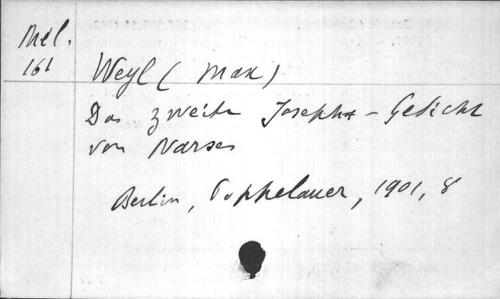 Mél.
161
Weyl (Max)
Das zweite Josephs-Gedicht
von Narses
Berlin, Poppelauer, 1901, 8